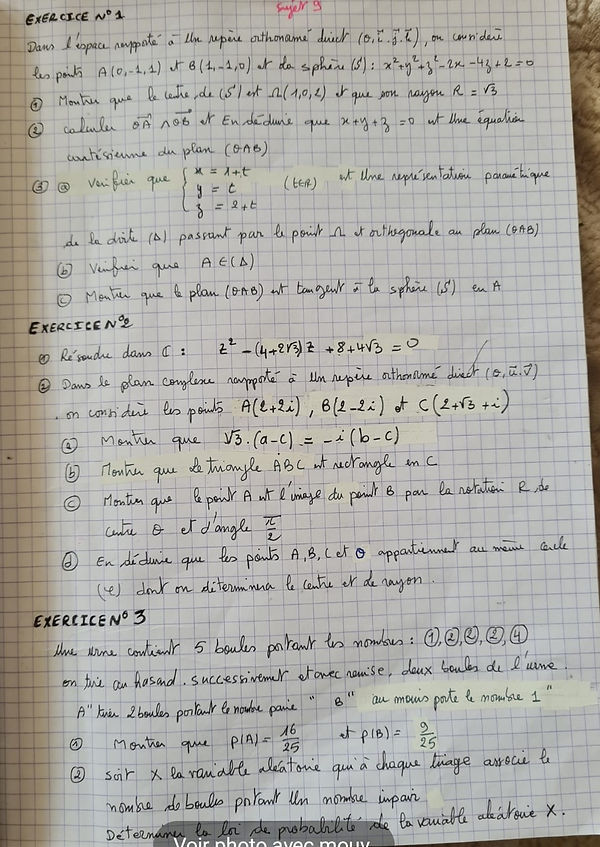 Sujet 9
EXERCICE N°1
Dans l'espace rapporté à un repère orthonormé direct (O, i, j, k), on considère
les points A(0,-1,1) et B(1,-1,0) et la sphère (S) : x²+y²+z²-2x-4z+2=0
① Montrer que le centre de (S) est Ω(1,0,2) et que son rayon R = √3
② calculer OA ∧ OB et En déduire que x+y+z=0 est Une équation
cartésienne du plan (OAB)
③ ⓐ Vérifier que { x = 1+t
y = t (t∈R) est Une représentation paramétrique
z = 2+t
de la droite (Δ) passant par le point Ω et orthogonale au plan (OAB)
ⓑ Vérifier que A ∈ (Δ)
ⓒ Montrer que le plan (OAB) est tangent à la sphère (S) en A
EXERCICE N°2
① Résoudre dans ℂ : z² - (4+2√3)z + 8+4√3 = 0
② Dans le plan complexe rapporté à Un repère orthonormé direct (O, u, v)
. on considère les points A(2+2i), B(2-2i) et C(2+√3+i)
ⓐ Montrer que √3.(a-c) = -i(b-c)
ⓑ Montrer que le triangle ABC est rectangle en C
ⓒ Montrer que le point A est l'image du point B par la rotation R de
centre O et d'angle π/2
ⓓ En déduire que les points A, B, C et O appartiennent au même cercle
(φ) dont on déterminera le centre et le rayon.
EXERCICE N°3
Une urne contient 5 boules portant les nombres : ①,②,②,②,④
on tire au hasard. successivement et avec remise, deux boules de l'urne.
A" tirer 2 boules portant le nombre paire " B" au moins porte le nombre 1 "
① Montrer que p(A) = 16/25 et p(B) = 9/25
② soit X la variable aléatoire qui à chaque tirage associe le
nombre de boules portant Un nombre impair
Déterminer la loi de probabilité de la variable aléatoire X.
Voir photo avec mouv